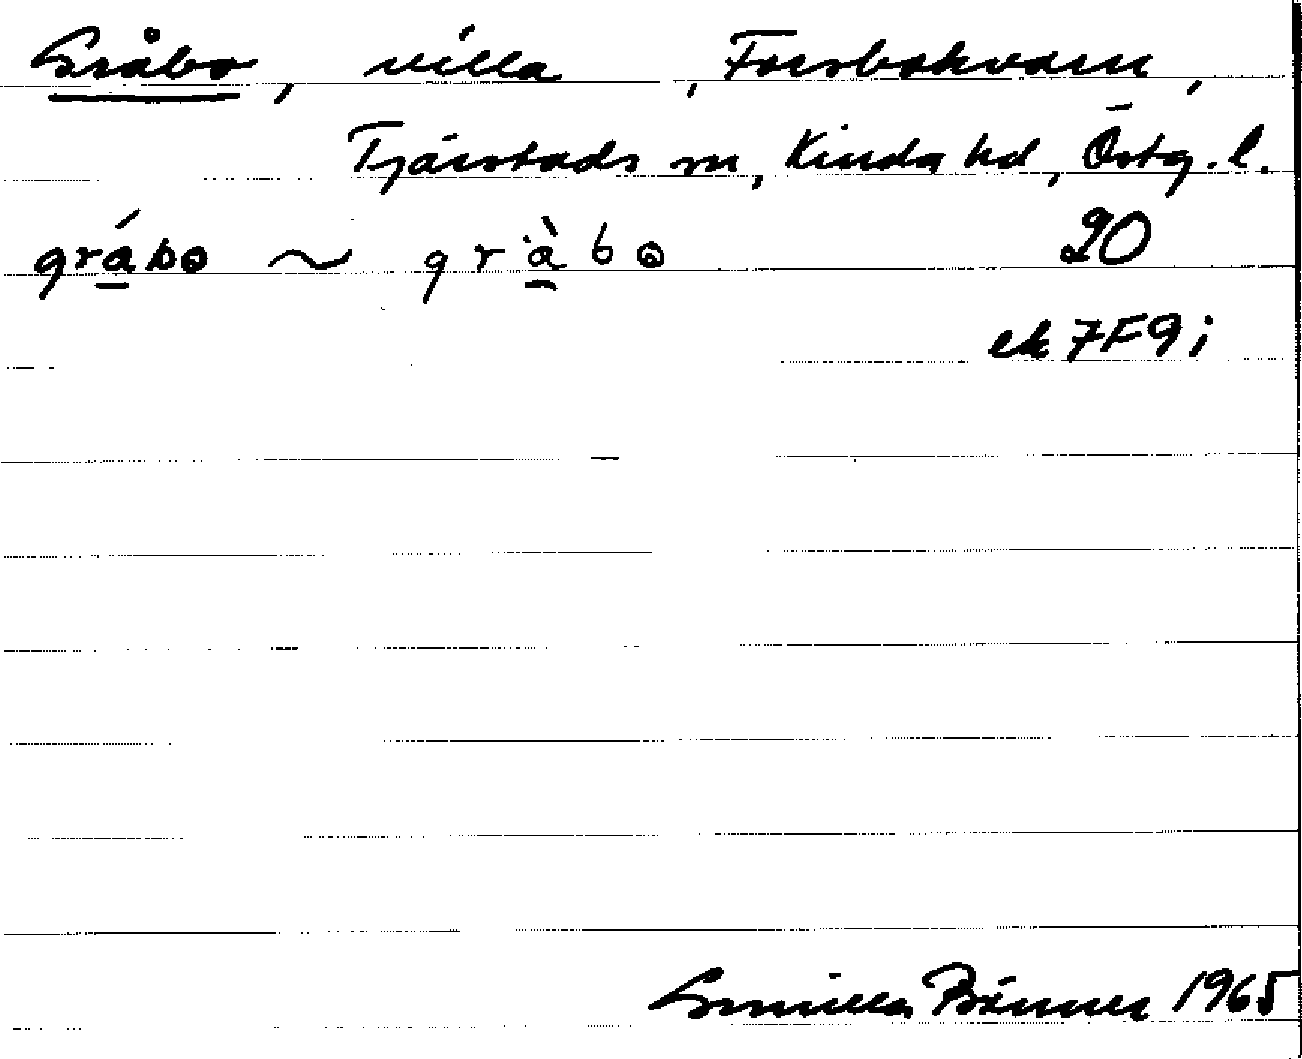 Gråbo, villa, Forsbokvarn,
Tjärstads sn, Kinda hd, Östg. l.
gråbo ~ gràbo 20
ek 7F9i
Gunilla 1965